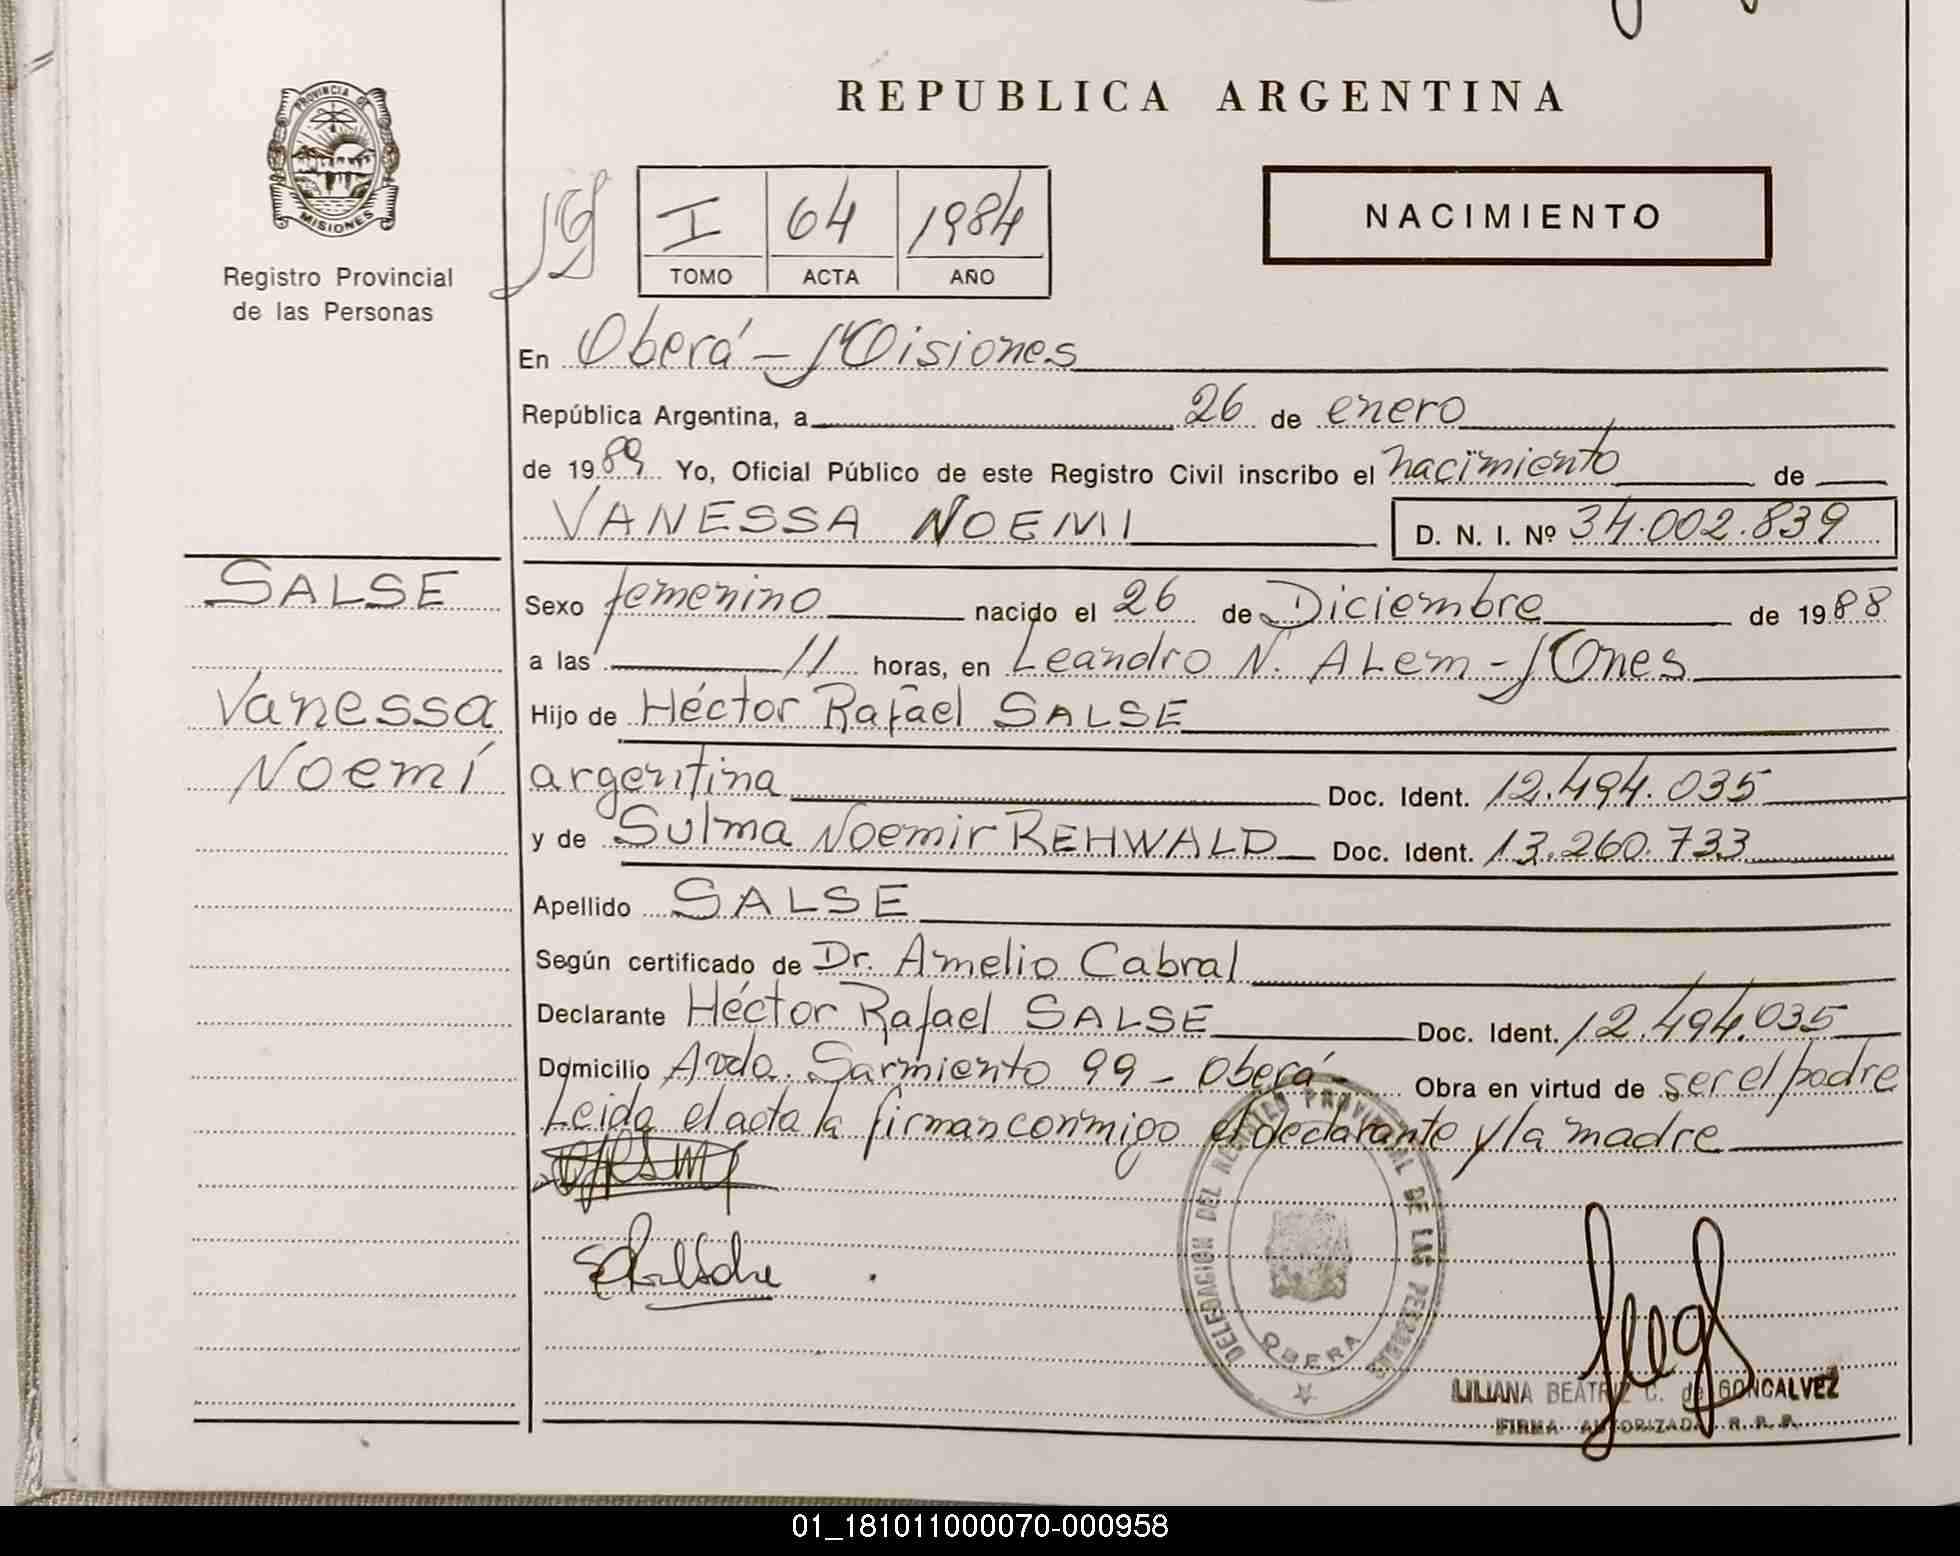 REPUBLICA ARGENTINA
PROVINCIA DE
MISIONES
Registro Provincial
de las Personas
I 64 1984
TOMO ACTA AÑO
NACIMIENTO
En Oberá - Misiones
República Argentina, a 26 de enero
de 1989 Yo, Oficial Público de este Registro Civil inscribo el nacimiento de
VANESSA NOEMI D. N. I. Nº 34.002.839
SALSE
Vanessa
Noemí
Sexo femenino nacido el 26 de Diciembre de 1988
a las 11 horas, en Leandro N. Alem - Mones
Hijo de Héctor Rafael SALSE
argentina Doc. Ident. 12.494.035
y de Sulma Noemir REHWALD Doc. Ident. 13.260.733
Apellido SALSE
Según certificado de Dr. Amelio Cabral
Declarante Héctor Rafael SALSE Doc. Ident. 12.494.035
Domicilio Avda. Sarmiento 99 - Oberá - Obra en virtud de ser el padre
Leida el acta la firman conmigo el declarante y la madre
DELEGACION DEL REGISTRO PROVINCIAL DE LAS PERSONAS
OBERA
LILIANA BEATRIZ C. de GONCALVEZ
FIRMA AUTORIZADA R. P. P.
01_181011000070-000958